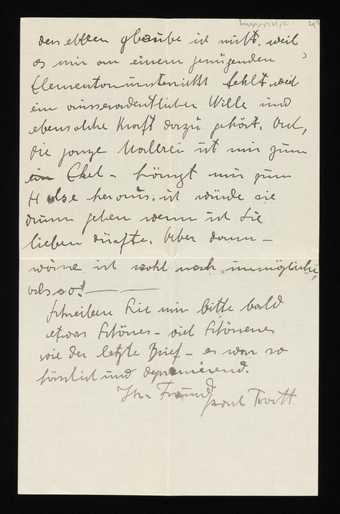 den ethen glaube ich nicht, weil
es mir am einem genügenden
Elementarunterricht fehlt, weil
ein ausserordentlicher Wille und
ebensolche Kraft dazu gehört. Und,
die ganze Malerei ist mir zum
Ekel - hängt mir zum
Halse heraus, ich würde sie
drum geben wenn ich Sie
lieben dürfte. Aber dann -
wäre ich wohl noch unmöglicher,
als so!
Schreiben Sie mir bitte bald
etwas Schönes - viel Schöneres
wie der letzte Brief - es war so
förmlich und deprimierend.
Ihr Freund